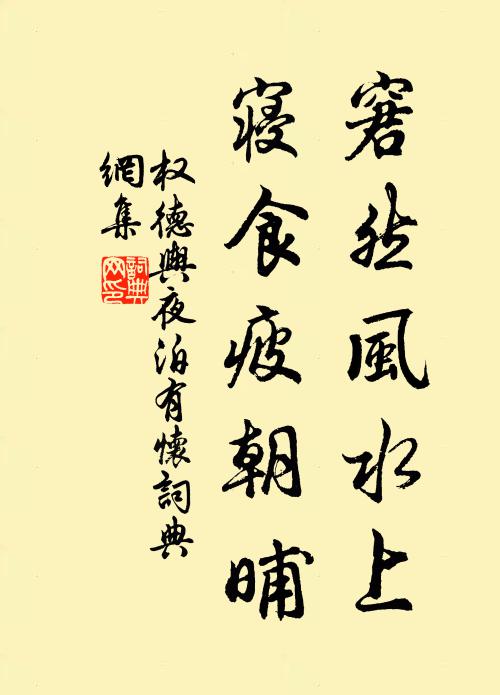 窘然風水上
寢食疲朝晡
权德輿夜泊有懷詞典
網集
詞典
网印